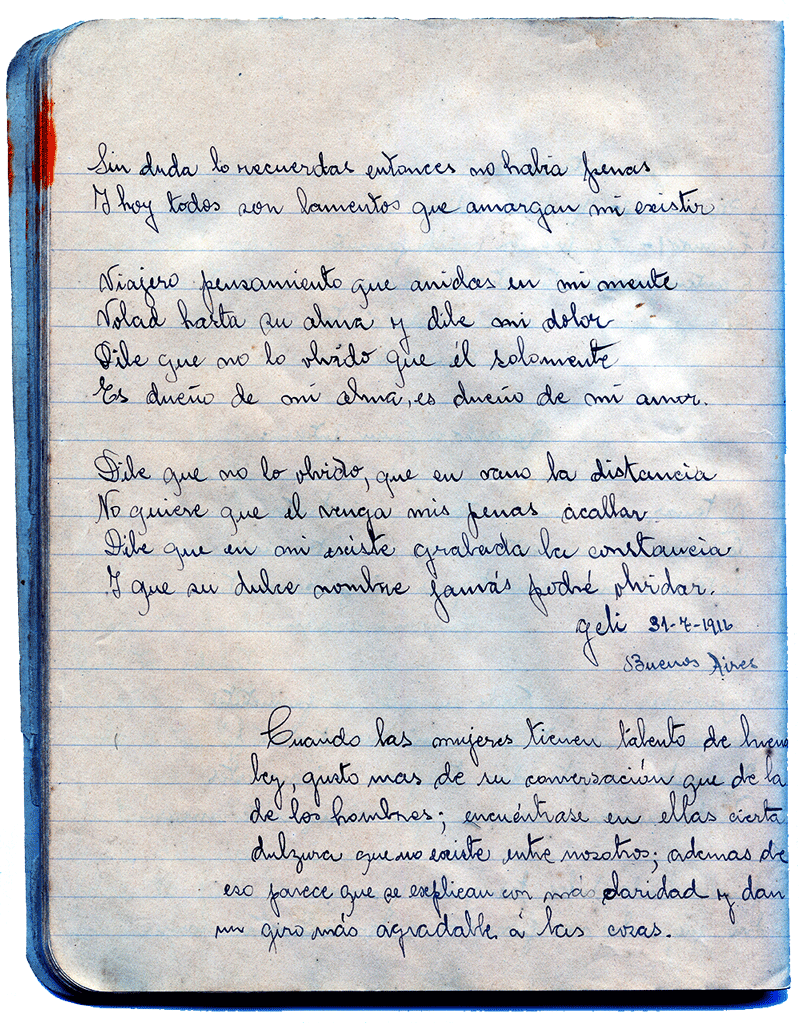 Sin duda lo recuerdas entonces no habia penas
Y hoy todos son lamentos que amargan mi existir
Viajero pensamiento que anidas en mi mente
Volad hasta su alma y dile mi dolor
Dile que no lo olvido que él solamente
Es dueño de mi alma, es dueño de mi amor.
Dile que no lo olvido, que en vano la distancia
No quiere que el venga mis penas acallar
Dile que en mi existe grabada la constancia
Y que su dulce nombre jamás podré olvidar.
geli 31-7-1916
Buenos Aires
Cuando las mujeres tienen talento de buena
ley, gusto mas de su conversación que de la
de los hombres; encuéntrase en ellas cierta
dulzura que no existe entre nosotros; ademas de
eso parece que se explican con más claridad y dan
un giro más agradable á las cozas.